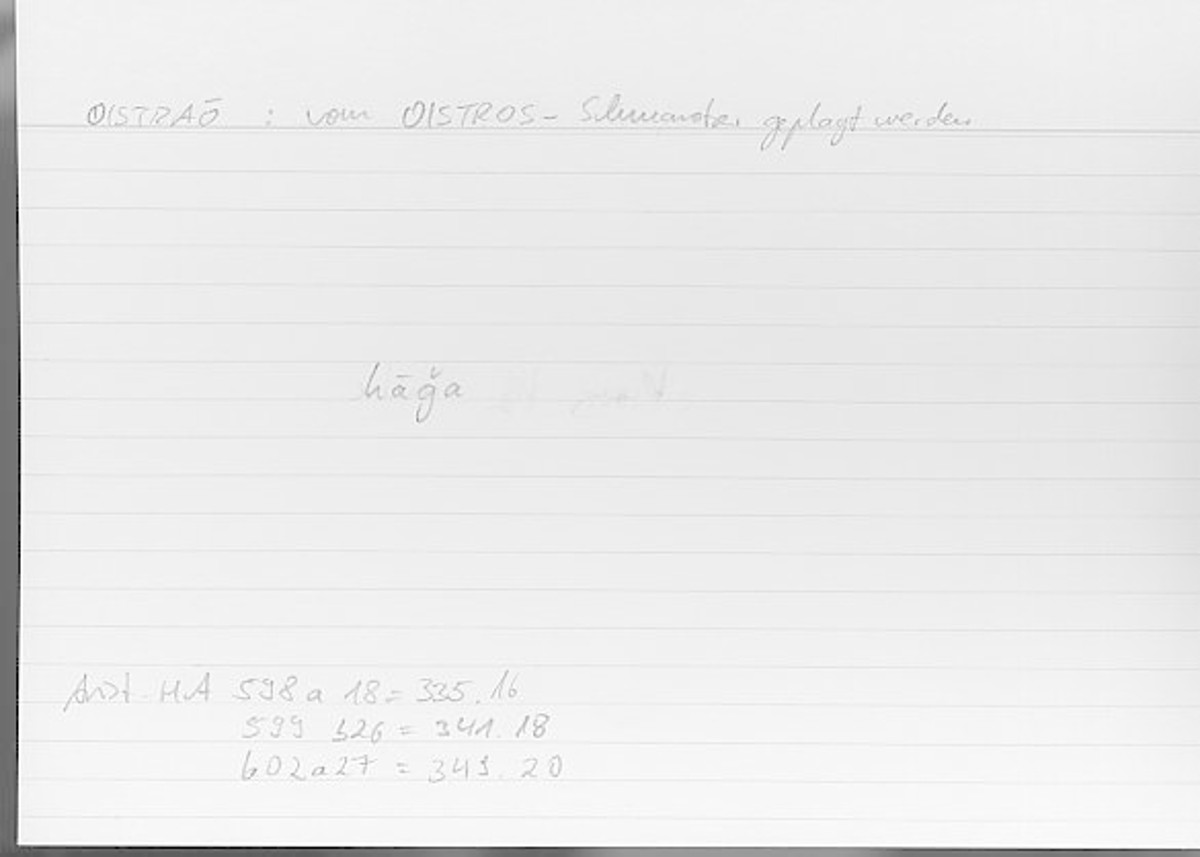 OISTRAŌ : vom OISTROS- Schmarotzer geplagt werden
hāǧa
Arist. HA 598 a 18 = 335.16
599 b26 = 341.18
602a27 = 349.20